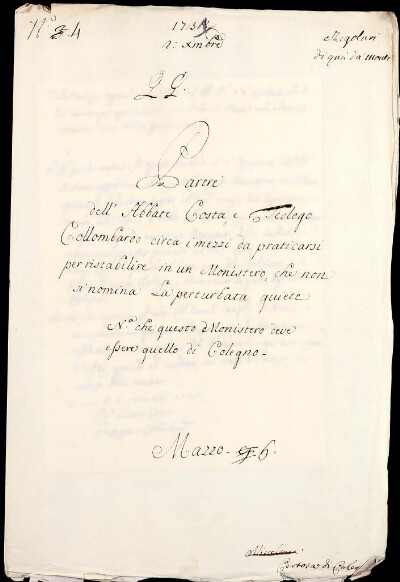 N.º 4
1731
2: Xmbre
Regolari
di quà da monti
P. G.
Parere
dell' Abbate Costa, e Teologo
Collombardo circa i mezzi da praticarsi
per ristabilire in un Monistero, che non
si nomina la perturbata quiete
N.ª che questo Monistero deve
essere quello di Colegno.
Mazzo 6.
Certosa di Coleg